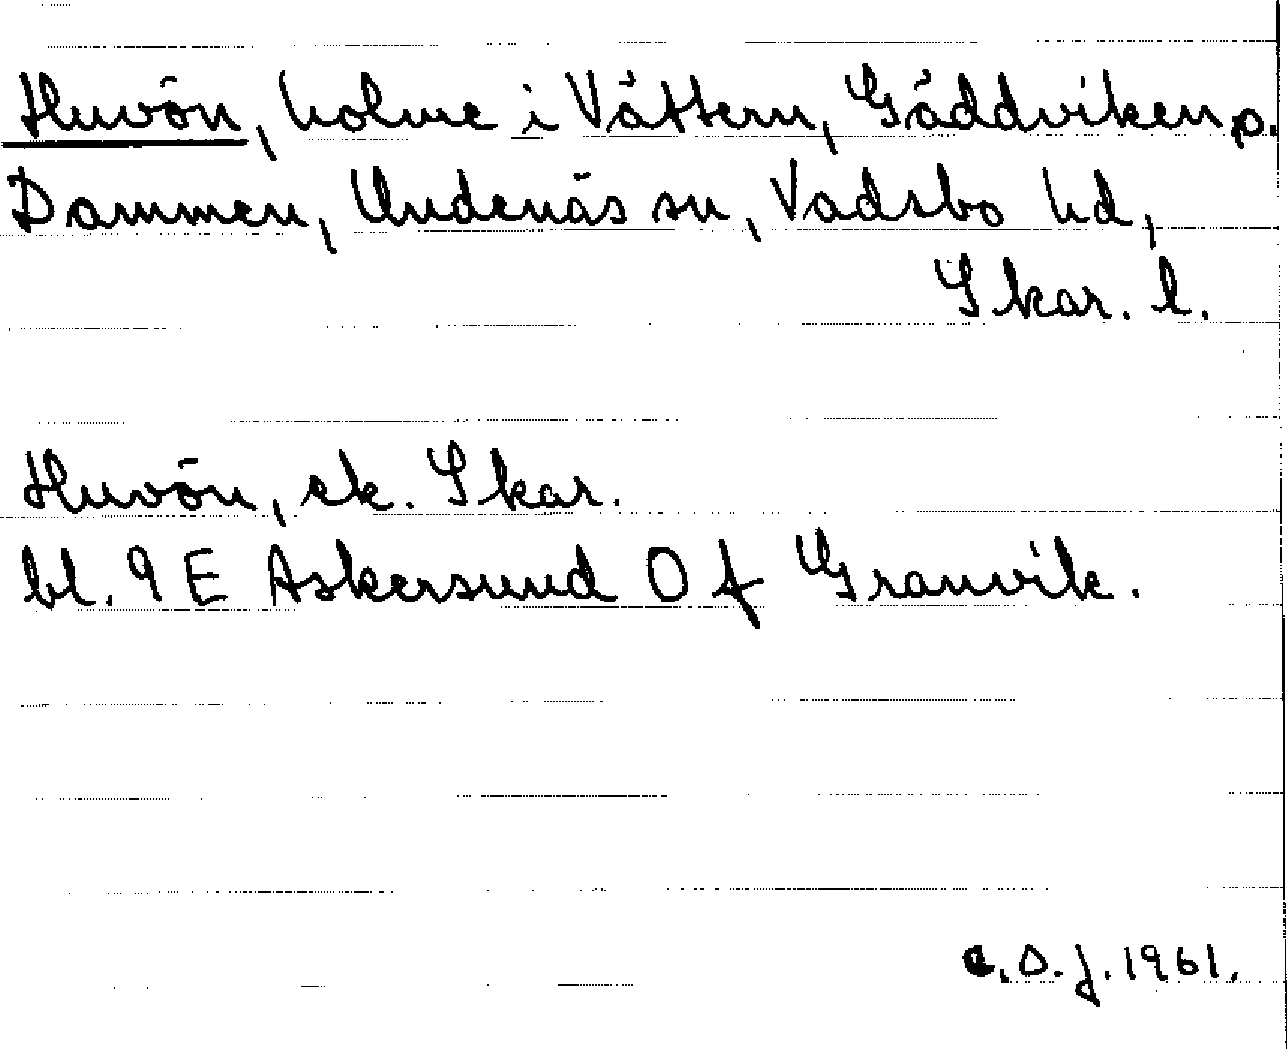 Huvön, holme i Vättern, Gäddviken p.
Dammen, Undenäs sn, Vadsbo hd,
Skar. l.
Huvön, ek. Skar.
bl. 9 E Askersund O f Granvik.
C.O.J. 1961.